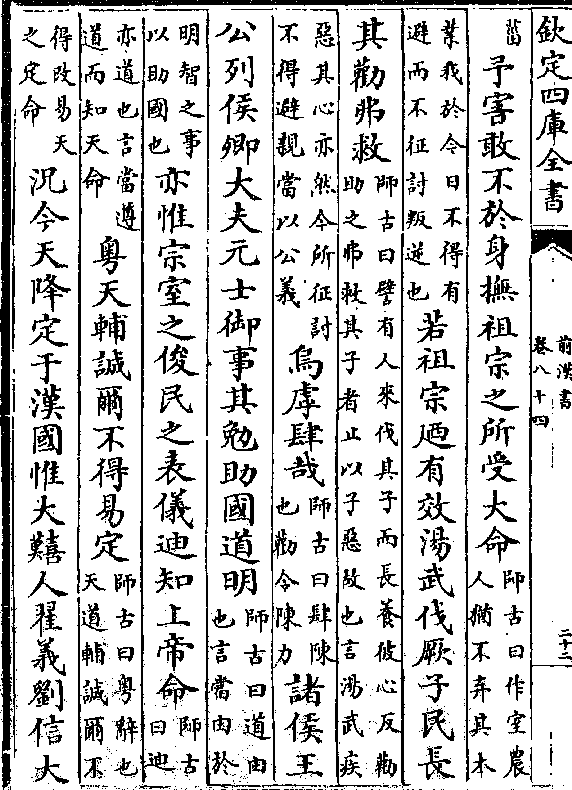 欽定四庫全書
前漢書
卷八十四
二十二
菑予害敢不於身撫祖宗之所受大命師古曰作室農人猶不弃其本
業我於今日不得有避而不征討叛逆也若祖宗迺有效湯武伐厥子民長
其勸弗救師古曰譬有人來伐其子而長養彼心反勸助之弗救其子者止以子惡故也言湯武疾
惡其心亦然今所征討不得避親當以公義烏虖肆哉師古曰肆陳也勸令陳力諸侯王
公列侯卿大夫元士御事其勉助國道明師古曰道由也言當由於
明智之事以助國也亦惟宗室之俊民之表儀迪知上帝命師古曰迪
亦道也言當遵道而知天命粵天輔誠爾不得易定師古曰粵辭也天道輔誠爾不
得改易天之定命況今天降定于漢國惟大囏人翟義劉信大